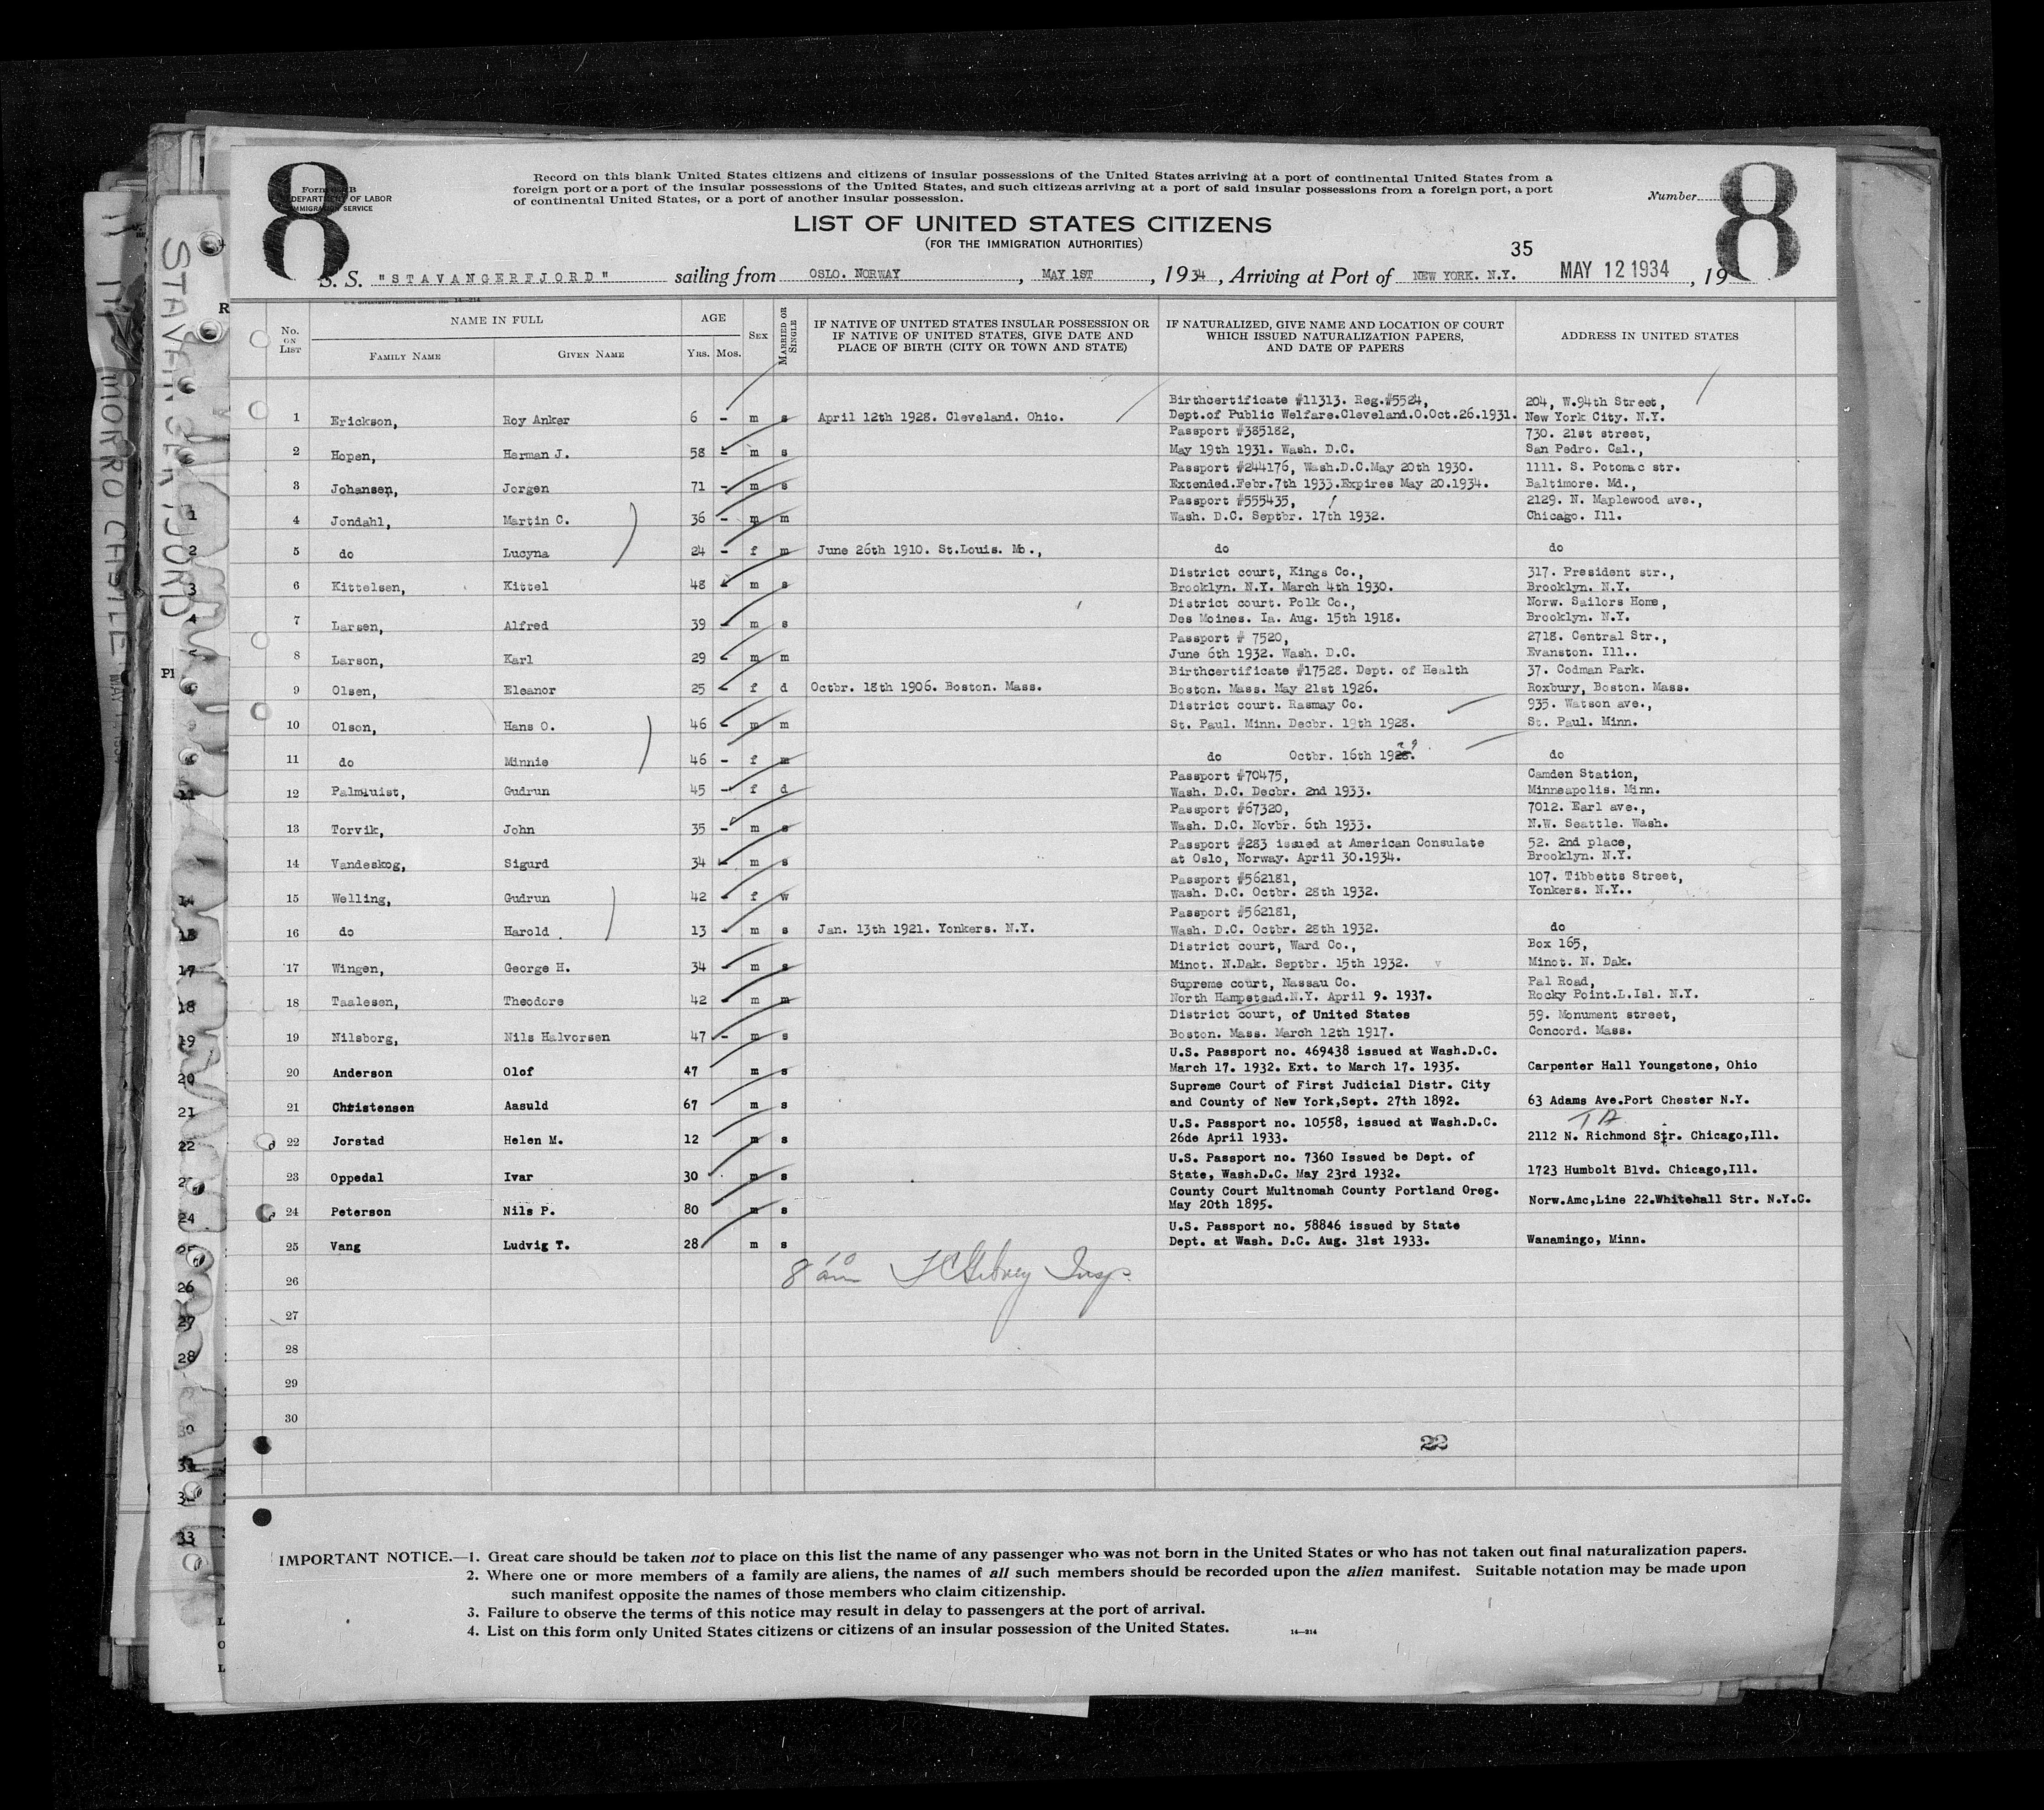 8
8
Form
DEPARTMENT OF LABOR
IMMIGRATION SERVICE
Record on this blank United States citizens and citizens of insular possessions of the United States arriving at a port of continental United States from a
foreign port or a port of the insular possessions of the United States, and such citizens arriving at a port of said insular possessions from a foreign port, a port
of continental United States, or a port of another insular possession.
Number
LIST OF UNITED STATES CITIZENS
(FOR THE IMMIGRATION AUTHORITIES)
35
S. S. "STAVANGERFJORD" sailing from OSLO. NORWAY, MAY 1ST, 1934, Arriving at Port of NEW YORK. N.Y. MAY 12 1934, 19
No. ON LIST NAME IN FULL FAMILY NAME GIVEN NAME AGE YRS. MOS. SEX MARRIED OR SINGLE IF NATIVE OF UNITED STATES INSULAR POSSESSION OR IF NATIVE OF UNITED STATES, GIVE DATE AND PLACE OF BIRTH (CITY OR TOWN AND STATE) IF NATURALIZED, GIVE NAME AND LOCATION OF COURT WHICH ISSUED NATURALIZATION PAPERS, AND DATE OF PAPERS ADDRESS IN UNITED STATES
Birthcertificate #11313. Reg.#5524, 204, W.94th Street,
1 Erickson, Roy Anker 6 - m s April 12th 1928. Cleveland. Ohio. Dept.of Public Welfare.Cleveland.O.Oct.26.1931. New York City. N.Y.
Passport #385182, 730. 21st street,
2 Hopen, Herman J. 58 - m s May 19th 1931. Wash. D.C. San Pedro. Cal.,
Passport #244176, Wash.D.C.May 20th 1930. 1111. S. Potomac str.
3 Johansen, Jorgen 71 - m s Extended.Febr.7th 1933.Expires May 20.1934. Baltimore. Md.,
Passport #555435, 2129. N. Maplewood ave.,
4 Jondahl, Martin C. 36 - m m Wash. D.C. Septbr. 17th 1932. Chicago. Ill.
5 do Lucyna 24 - f m June 26th 1910. St.Louis. Mo., do do
District court, Kings Co., 317. President str.,
6 Kittelsen, Kittel 48 - m s Brooklyn. N.Y. March 4th 1930. Brooklyn. N.Y.
District court. Polk Co., Norw. Sailors Home,
7 Larsen, Alfred 39 - m s Des Moines. Ia. Aug. 15th 1918. Brooklyn. N.Y.
Passport # 7520, 2718. Central Str.,
8 Larson, Karl 29 - m m June 6th 1932. Wash. D.C. Evanston. Ill..
Birthcertificate #17528. Dept. of Health 37. Codman Park.
9 Olsen, Eleanor 25 - f d Octbr. 18th 1906. Boston. Mass. Boston. Mass. May 21st 1926. Roxbury, Boston. Mass.
District court. Rasmay Co. 935. Watson ave.,
10 Olson, Hans O. 46 - m m St. Paul. Minn. Decbr. 19th 1928. St. Paul. Minn.
11 do Minnie 46 - f m do Octbr. 16th 1928. do
Passport #70475, Camden Station,
12 Palmquist, Gudrun 45 - f d Wash. D.C. Decbr. 2nd 1933. Minneapolis. Minn.
Passport #67320, 7012. Earl ave.,
13 Torvik, John 35 - m s Wash. D.C. Novbr. 6th 1933. N.W. Seattle. Wash.
Passport #283 issued at American Consulate 52. 2nd place,
14 Vandeskog, Sigurd 34 - m s at Oslo, Norway. April 30.1934. Brooklyn. N.Y.
Passport #562181, 107. Tibbetts Street,
15 Welling, Gudrun 42 - f w Wash. D.C. Octbr. 28th 1932. Yonkers. N.Y..
Passport #562181,
16 do Harold 13 - m s Jan. 13th 1921. Yonkers. N.Y. Wash. D.C. Octbr. 28th 1932. do
District court, Ward Co., Box 165,
17 Wingen, George H. 34 - m s Minot. N.Dak. Septbr. 15th 1932. Minot. N. Dak.
Supreme court, Nassau Co. Pal Road,
18 Taalesen, Theodore 42 - m m North Hampstead.N.Y. April 9. 1937. Rocky Point.L.Isl. N.Y.
District court, of United States 59. Monument street,
19 Nilsborg, Nils Halvorsen 47 - m s Boston. Mass. March 12th 1917. Concord. Mass.
U.S. Passport no. 469438 issued at Wash.D.C.
20 Anderson Olof 47 m s March 17. 1932. Ext. to March 17. 1935. Carpenter Hall Youngstone, Ohio
Supreme Court of First Judicial Distr. City
21 Christensen Aasuld 67 m s and County of New York,Sept. 27th 1892. 63 Adams Ave.Port Chester N.Y.
U.S. Passport no. 10558, issued at Wash.D.C.
22 Jorstad Helen M. 12 m s 26de April 1933. 2112 N. Richmond Str. Chicago,Ill.
U.S. Passport no. 7360 Issued be Dept. of
23 Oppedal Ivar 30 m s State, Wash.D.C. May 23rd 1932. 1723 Humbolt Blvd. Chicago,Ill.
County Court Multnomah County Portland Oreg.
24 Peterson Nils P. 80 m s May 20th 1895. Norw.Amc,Line 22.Whitehall Str. N.Y.C.
U.S. Passport no. 58846 issued by State
25 Vang Ludvig T. 28 m s Dept. at Wash. D.C. Aug. 31st 1933. Wanamingo, Minn.
26
27
28
29
30
22
IMPORTANT NOTICE.—1. Great care should be taken not to place on this list the name of any passenger who was not born in the United States or who has not taken out final naturalization papers.
2. Where one or more members of a family are aliens, the names of all such members should be recorded upon the alien manifest. Suitable notation may be made upon
such manifest opposite the names of those members who claim citizenship.
3. Failure to observe the terms of this notice may result in delay to passengers at the port of arrival.
4. List on this form only United States citizens or citizens of an insular possession of the United States.
14—314